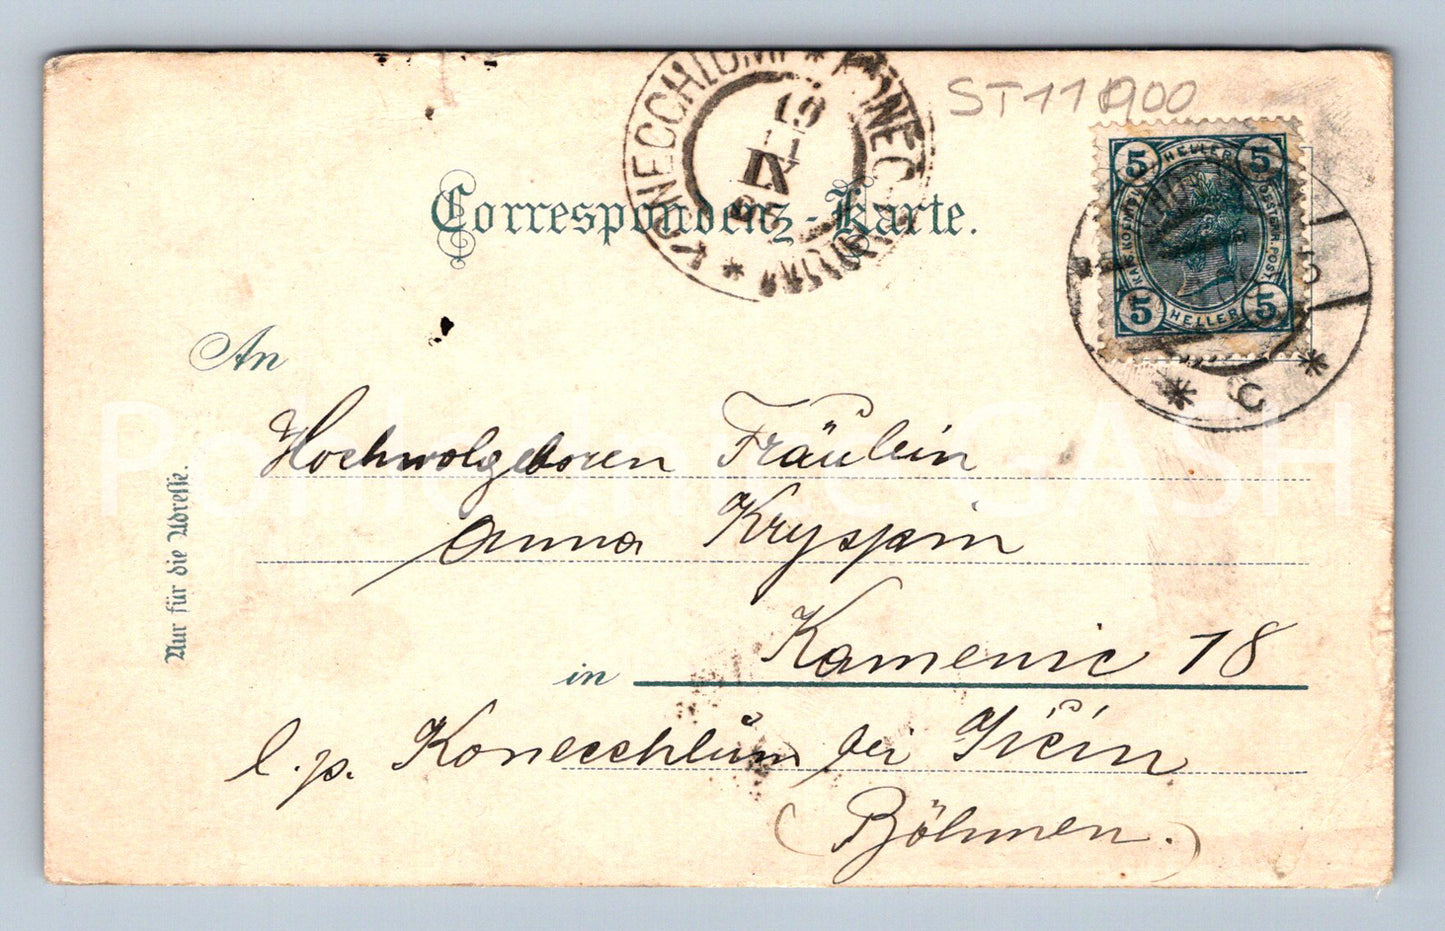 ST11 1900
KONECCHLUMI * KONEC
19
IX
Correspondenz-Karte.
5 HELLER 5
KAIS. KOENIGL. OESTERR. POST.
5 HELLER 5
An
Hochwolgeboren Fräulein
Anna Kryspin
Nur für die Adresse.
Kamenic 18
in
l. p. Konecchlům bei Jičín
(Böhmen.)
Pohlednice GASH